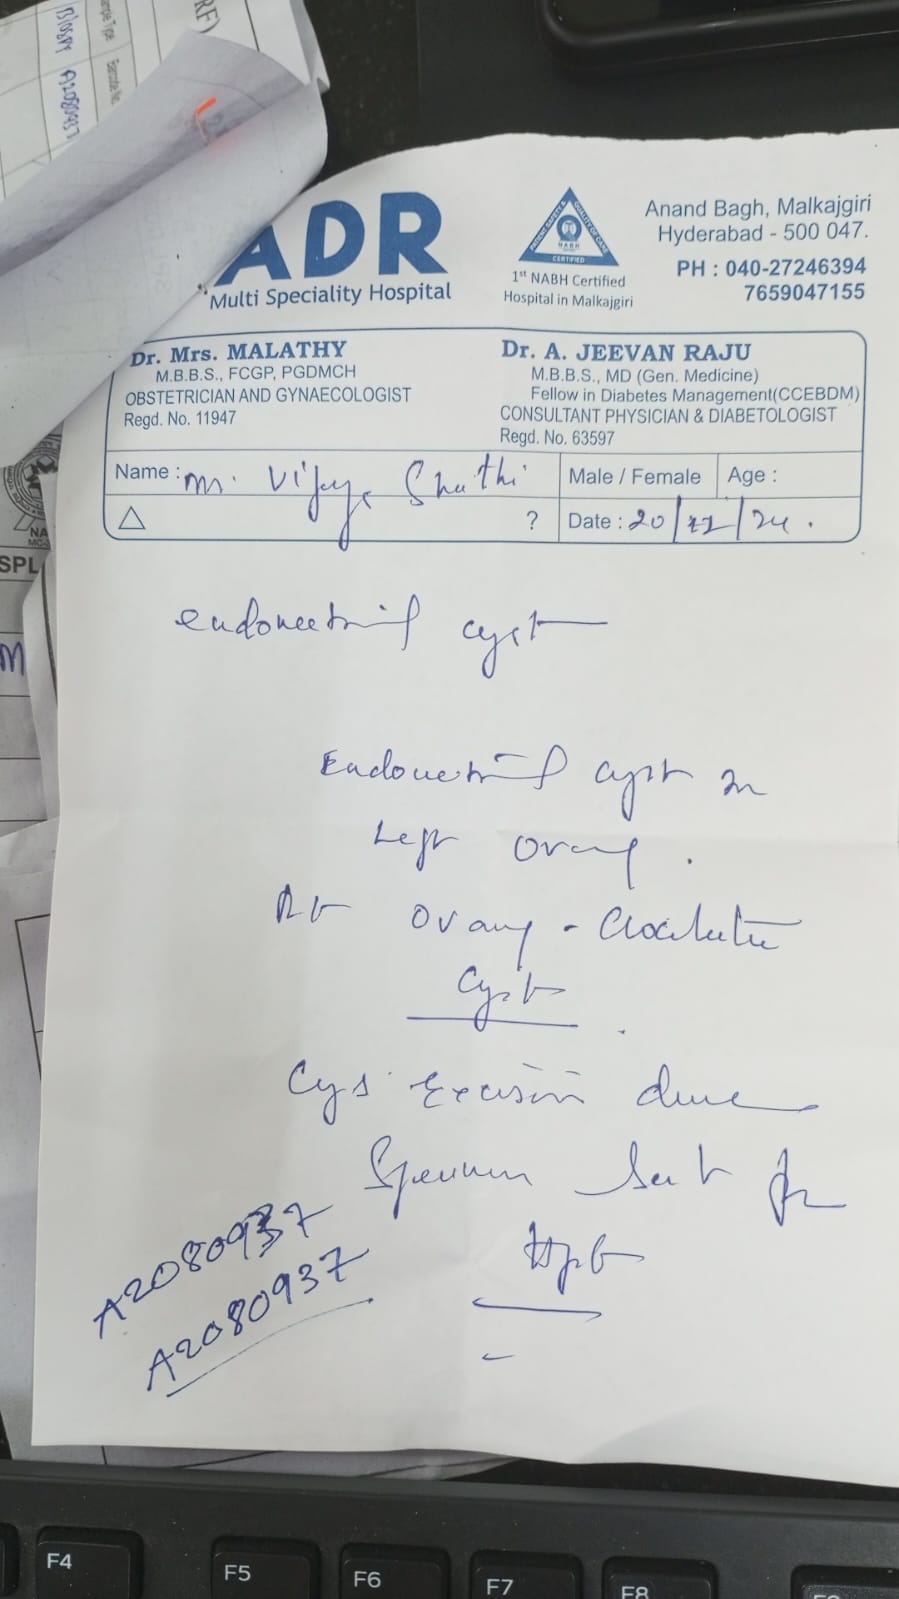 RF)
Sample Type
Barcode No.
Biospy A2080937
ADR
Multi Speciality Hospital
PATIENT SAFETY & QUALITY OF CARE
NABH
CERTIFIED
1st NABH Certified
Hospital in Malkajgiri
Anand Bagh, Malkajgiri
Hyderabad - 500 047.
PH : 040-27246394
7659047155
Dr. Mrs. MALATHY
M.B.B.S., FCGP, PGDMCH
OBSTETRICIAN AND GYNAECOLOGIST
Regd. No. 11947
Dr. A. JEEVAN RAJU
M.B.B.S., MD (Gen. Medicine)
Fellow in Diabetes Management(CCEBDM)
CONSULTANT PHYSICIAN & DIABETOLOGIST
Regd. No. 63597
Name : M. Vijaya Shathi
Male / Female
Age :
△ ?
Date : 20/11/24.
endometrial cyst
Endometrial cyst in
Left Ovary.
Rt Ovary - Choclate
Cyst.
Cys Excision done
Specimen Sent for
Hpe
A2080937
A2080937
SPL
M
F4
F5
F6
F7
F8